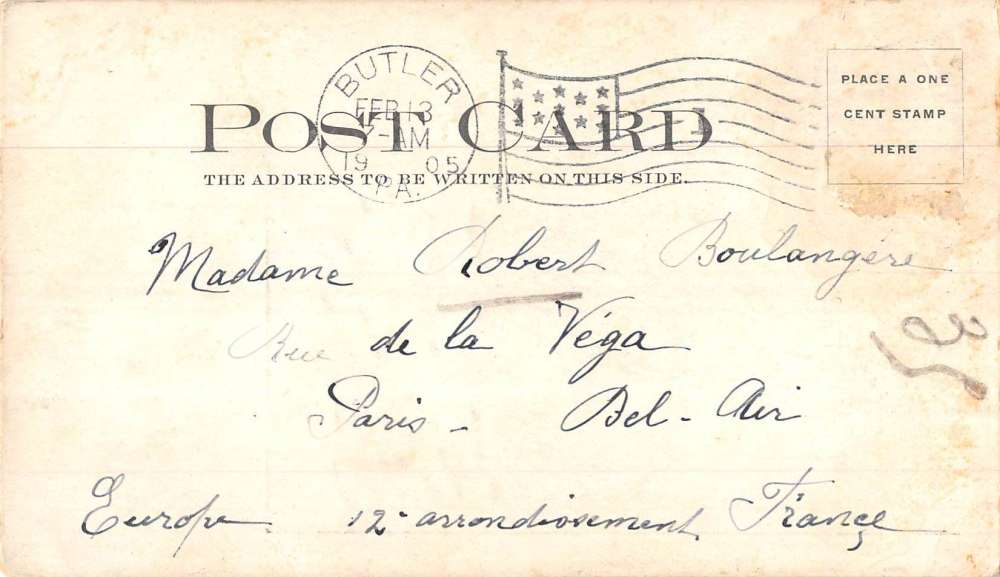 BUTLER
FEB 13
7-AM
19 05
PA.
POST CARD
THE ADDRESS TO BE WRITTEN ON THIS SIDE.
PLACE A ONE
CENT STAMP
HERE
Madame Robert Boulangère
Rue de la Véga
Paris - Bel-Air
Europe 12e arrondissement France